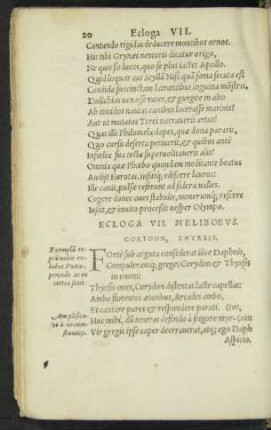 20 Ecloga VII.
Cantando rigidas deducere montibus ornos.
His tibi Grynæi nemoris dicatur origo,
Ne quis sit lucus, quo se plus iactet Apollo.
Quid loquar aut Scyllā Nisi, quā fama secuta est
Candida succinctam latrantibus inguina mōstris,
Dulichias uexasse rates, & gurgite in alto
Ah timidos nautas canibus lacerasse marinis?
Aut ut mutatos Terei narrauerit artus?
Quas illi Philomela dapes, quæ dona pararit,
Quo cursu deserta petiuerit, & quibus ante
Infœlix sua tecta superuolitauerit alis?
Omnia quæ Phœbo quondam meditante beatus
Audijt Eurotas, iussitq; ediscere lauros:
Ille canit, pulsæ referunt ad sidera ualles.
Cogere donec oues stabulis, numerumq; referre
Iussit, & inuito processit uesper Olympo.
ECLOGA VII. MELIBOEVS.
CORYDON, THYRSIS.
Forte sub arguta consederat ilice Daphnis,
Compulerantq; greges Corydon & Thyrsis
in unum:
Thyrsis oues, Corydon distentas lacte capellas:
Ambo florentes ætatibus, Arcades ambo,
Et cantare pares & respondere parati. (tos,
Huc mihi, dū teneras defendo à frigore myr-
Vir gregis ipse caper deerrauerat, atq; ego Daph
Aspicio,